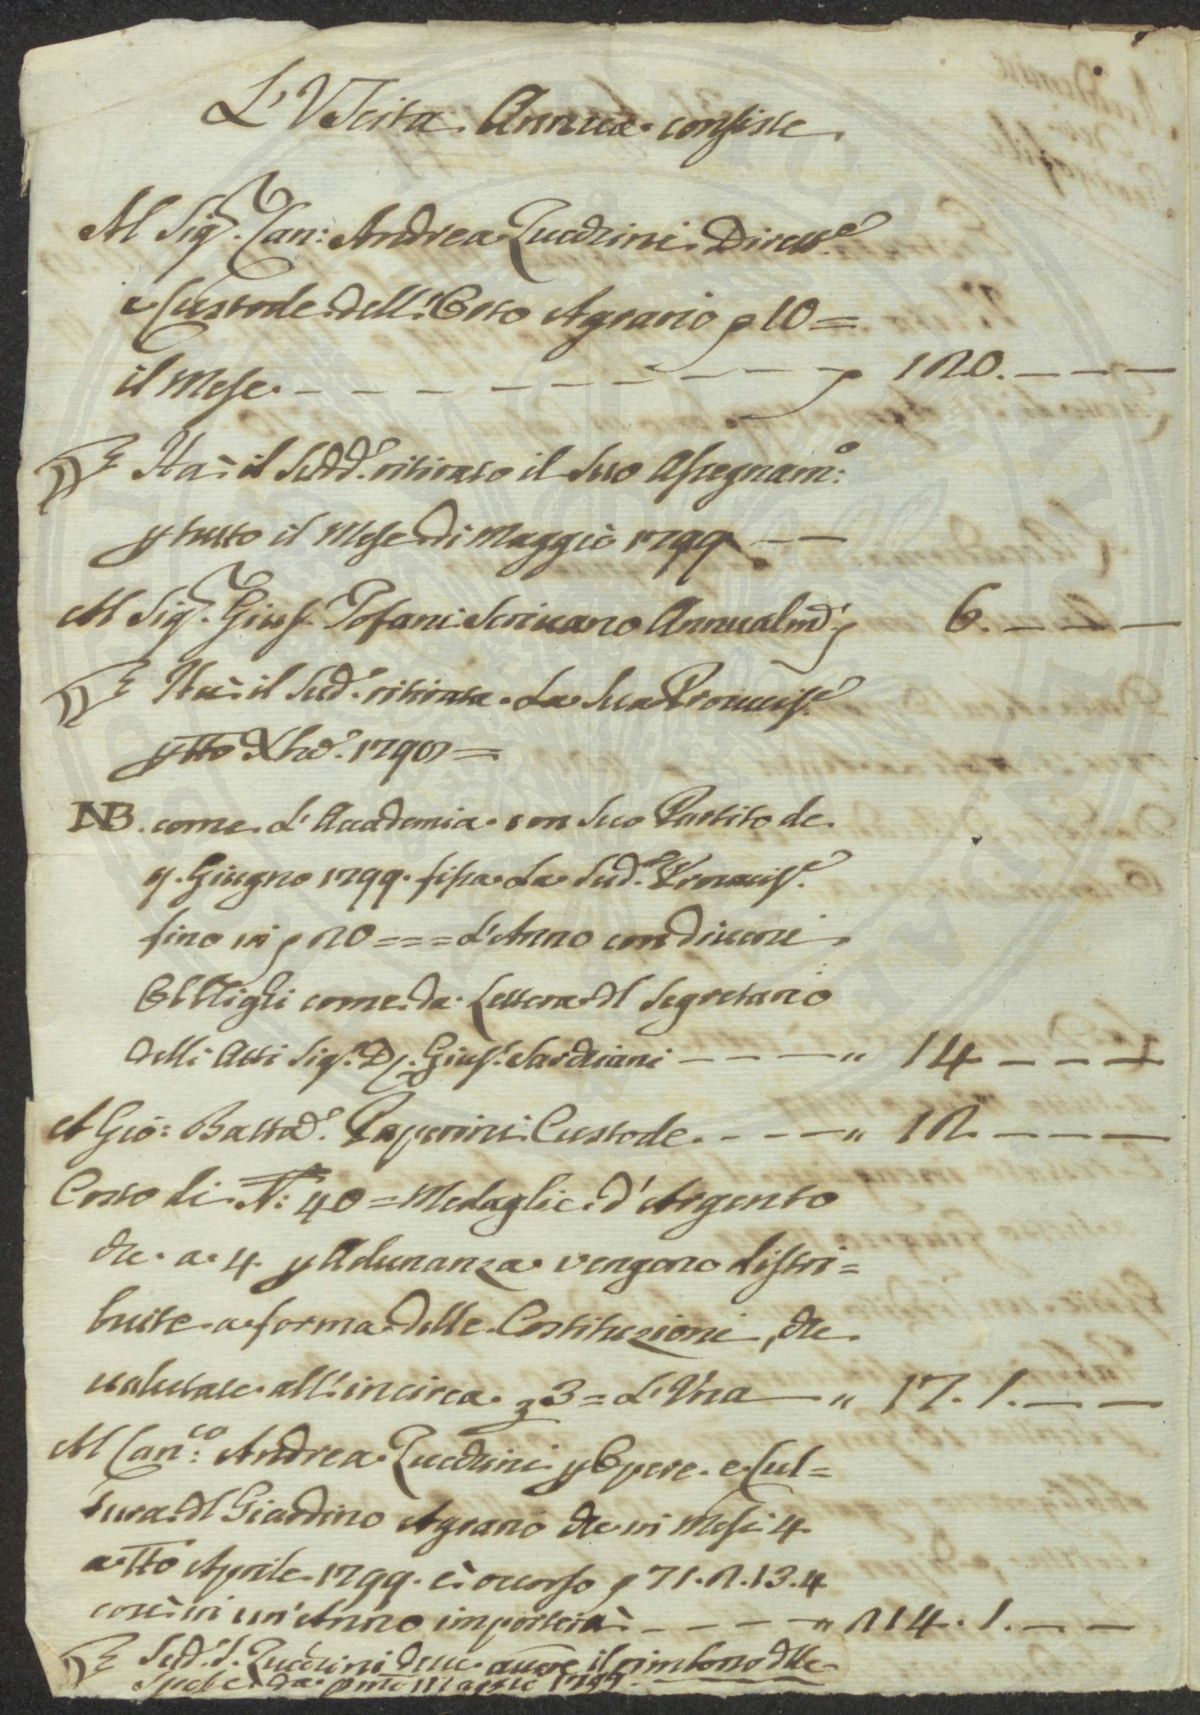 L'Uscita Annua consiste
Al Sig.r Can: Andrea Zucchini Dirett.e
e Custode dell'Orto Agrario p 10 =
il Mese - - - - - - - - - p 120. - - -
Ha il Sudd.o ritirato il Suo Assegnam.o:
p tutto il Mese di Maggio 1799. - -
Al Sig.r Gius.e Tofani Scrivano Annualm.e p 6. - - -
Ha il Sud.o ritirata La Sua Provvis.e
p tto Xbre. 1798 =
NB. come L'Accademia con Suo Partito de
Giugno 1799. fissa La Sud.a Provvis.e
fino in p 20 === L'Anno con diversi
Obblighi come da Lettera del Segretario
delli Atti Sig.r D.r Gius.e Sarchiani - - - - " 14 - - -
A Gio: Batta Paperini Custode. - - - - " 12. - - -
Costo di N.o: 40 = Medaglie d'Argento
che a 4. p Adunanza vengono distri=
buite a forma delle Costituzioni, che
valutate all'incirca 3 = L'Una - - " 17. 1. - -
Al Can.co: Andrea Zucchini p Opere e Cul=
tura del Giardino Agrario che in Mesi 4.
a tto Aprile 1799. è occorso p 71. 2. 13. 4
così in un'Anno importerà - - - - " 214. 1. - -
Sud.o S. Zucchini deve avere il rimborso delle
Spese da Maggio 1799.